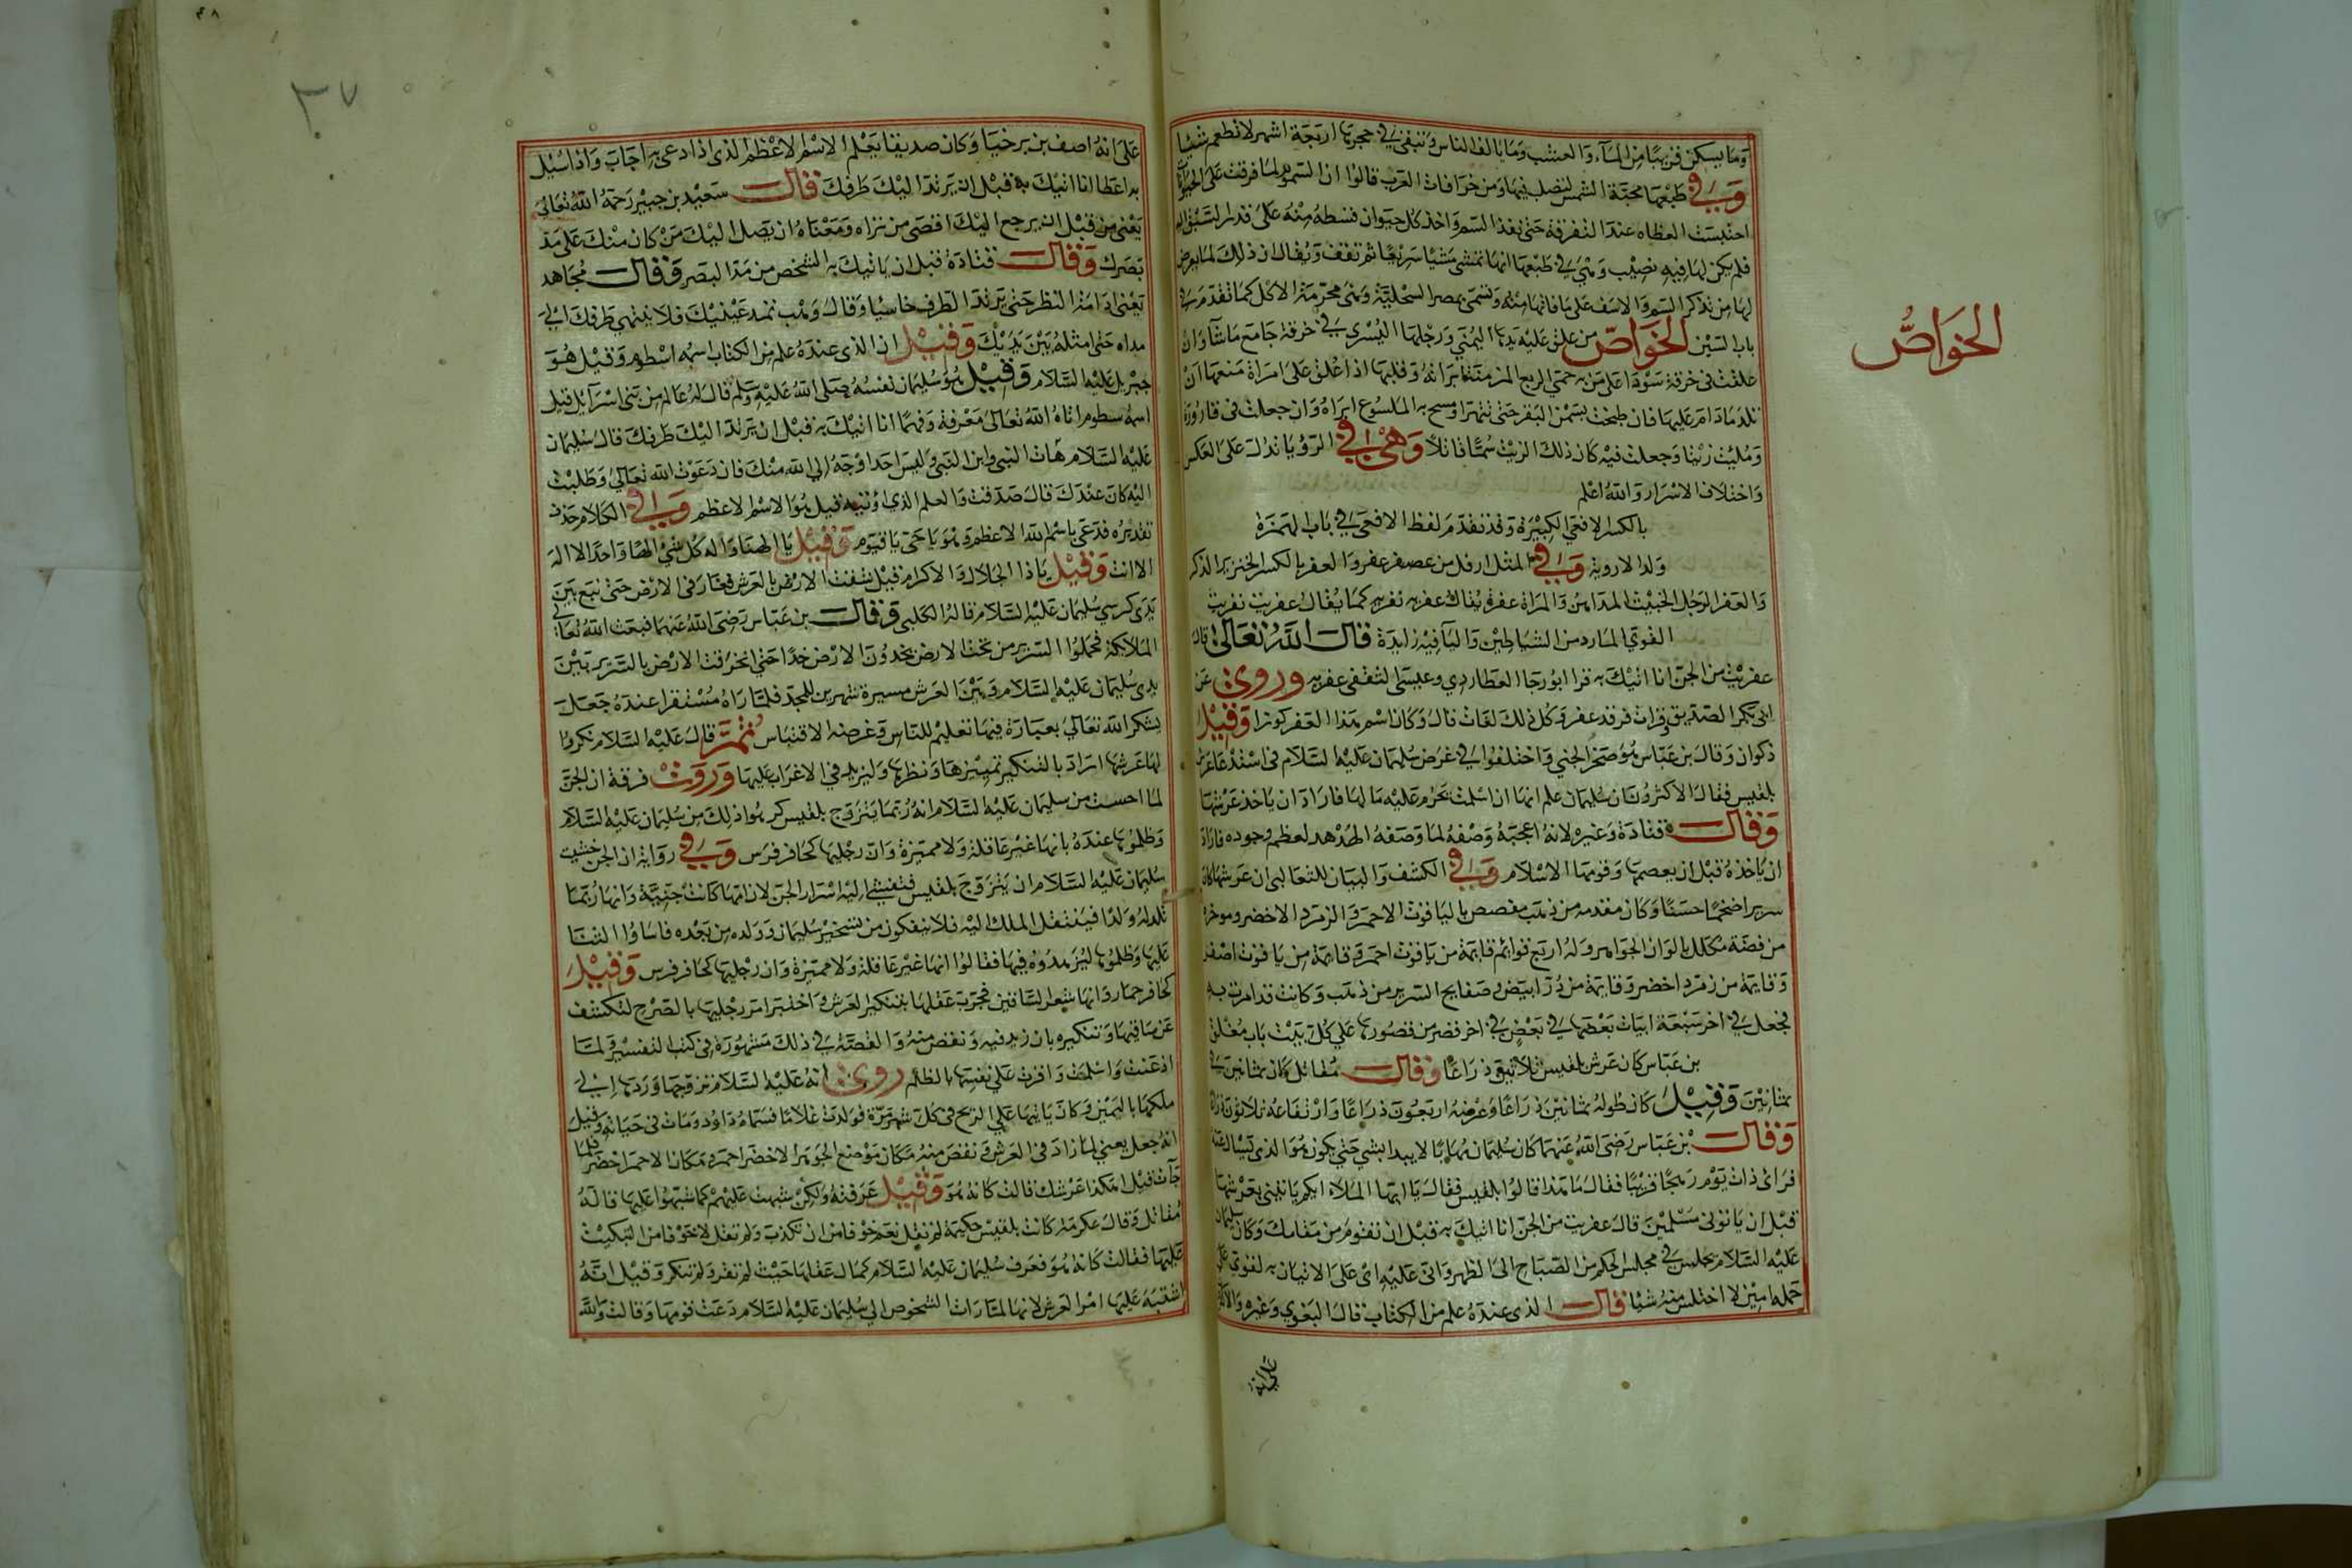 وما يسكن قريبا من الماء والعشب وما يالف الناس وتبقى في حجرتها اربعة اشهر لا تطعم شيئا
وفي طبعها محبة الشمس لتصلب فيها ومن خرافات العرب قالوا ان السموم لما فرقت على الحيوان
احتبست العظاه عند التفرقة حتى نفذ السم واخذ كل حيوان قسطه منه على قدر السبق اليه
فلم يكن لها فيه نصيب وهي في طبعها انها تمشي مشيا سريعا ثم تقف ويقال ان ذلك لما يعرض
لها من تذكر السم والاسف على ما فاتها منه وتسمى بمصر السحلية وهي محرمة الاكل كما تقدم في
باب السين الخواص من علق عليه يدها اليمنى ورجلها اليسرى في خرقة جامع ما شآ وان
علقت في خرقة سودا على من به حمى الربع المزمنة ابراته وقلبها اذا علق على امراة منعها ان
تلد ما دام عليها فان طبخت بسمن البقر حتى تتهرا ومسح به الملسوع ابراه وان جعلت في قارورة
وملئت زيتا وجعلت فيه كان ذلك الزيت سما قاتلا وهي في الرؤيا تدل على العكس
واختلاف الاسرار والله اعلم
بالكسر الافعى الكبيرة وقد تقدم لفظ الافعى في باب الهمزة
ولد الاروية وفي المثل ارفل من عصفر عفر والعفر بالكسر الخنزير الذكر
والعفر الرجل الخبيث المداهن والمراة عفرة يقال عفريه نفريه كما يقال عفريت نفريت
القوي المارد من الشياطين واليا فيه زايدة قال الله تعالى قال
عفريت من الجن انا اتيك به قرا ابو رجا العطاردي وعيسى الثقفي عفريه وروي عن
ابي بكر الصديق وقرات فرقد عفر وكل ذلك لغات قال وكان اسم هذا العفر كوزا وقيل
ذكوان وقال بن عباس هو صخر الجني واختلفوا في غرض سليمان عليه السلام في استدعا عرش
بلقيس فقال الاكثرون ان سليمان علم انها ان اسلمت يحرم عليه ما لها فاراد ان ياخذ عرشها
وقال قتادة وغيره لانه اعجبه وصفه لما وصفه الهدهد لعظم وجوده فاراد
ان ياخذه قبل ان يعصمها وقومها الاسلام وفي الكشف والبيان للثعالبي ان عرشها كان
سريرا ضخما حسنا وكان مقدمه من ذهب مفصص بالياقوت الاحمر والزمرد الاخضر ومؤخره
من فضة مكلل بالوان الجواهر وله اربع قوائم قايمة من ياقوت احمر وقايمة من ياقوت اصفر
وقايمة من زمرد اخضر وقايمة من در ابيض وصفايح السرير من ذهب وكانت قد امرت به
فجعل في اخر سبعة ابيات بعضها في بعض في اخر قصر من قصورها على كل بيت باب مغلق
بن عباس كان عرش بلقيس ثلاثون ذراعا وقال مقاتل كان ثمانين في
ثمانين وقيل كان طوله ثمانين ذراعا وعرضه اربعون ذراعا وارتفاعه ثلاثون ذراعا
وقال بن عباس رضى الله عنهما كان سليمان مهابا لا يبدا بشي حتى يكون هو الذي يسال عنه
فراى ذات يوم رهجا قريبا فقال ما هذا قالوا بلقيس فقال يا ايها الملا ايكم ياتيني بعرشها
قبل ان ياتوني مسلمين قال عفريت من الجن انا اتيك به قبل ان تقوم من مقامك وكان سليمان
عليه السلام يجلس في مجلس الحكم من الصباح الى الظهر واني عليه اي على الاتيان به لقوي على
حمله امين لا اختلس منه شيئا قال الذي عنده علم من الكتاب قال البغوي وغيره والاكثر
على انه
الخواص
٣٧
على انه اصف بن برخيا وكان صديقا يعلم الاسم الاعظم الذي اذا دعي به اجاب واذا سئل
به اعطا انا اتيك به قبل ان يرتد اليك طرفك قال سعيد بن جبير رحمة الله تعالى
يعني من قبل ان يرجع اليك اقصى من تراه ومعناه ان يصل اليك من كان منك على مد
بصرك وقال قتادة قبل ان ياتيك به الشخص من مد البصر وقال مجاهد
يعني ادامة النظر حتى يرتد الطرف خاسيا وقال وهب تمد عينيك فلا ينتهي طرفك الى
مداه حتى امثله بين يديك وقيل ان الذي عنده علم من الكتاب اسمه اسطوم وقيل هو
جبريل عليه السلام وقيل هو سليمان نفسه صلى الله عليه وسلم قال له عالم من بني اسرآيل قيل
اسمه سطوم اتاه الله تعالى معرفة وفهما انا اتيك به قبل ان يرتد اليك طرفك قال سليمان
عليه السلام هات النبي وابن النبي وليس احد اوجه الي الله منك فان دعوت الله تعالى وطلبت
اليه كان عندك قال صدقت والعلم الذي اوتيه قيل هو الاسم الاعظم وفي الكلام حذف
تقديره فدعى باسم الله الاعظم وهو يا حي يا قيوم وقيل يا الهنا واله كل شيء الها واحدا لا اله
الا انت وقيل يا ذا الجلال والاكرام قيل شقت الارض بالعرش فغار في الارض حتى نبع بين
يدي كرسي سليمان عليه السلام قاله الكلبي وقال بن عباس رضى الله عنهما فبعث الله تعالى
الملائكة فحملوا السرير من تحت الارض يخدون الارض خدا حتى انخرقت الارض بالسرير بين
يدي سليمان عليه السلام وبين العرش مسيرة شهرين للمجد فلما راه مستقرا عنده جعل
يشكر الله تعالى بعبارة فيها تعليم للناس وعرضه الاقتباس ثم قال عليه السلام نكروا
لها عرشها اراد بالتنكير تمييزها ونظرها وليزيد في الاغراب عليها وروت فرقة ان الجن
لما احست من سليمان عليه السلام انه ربما يتزوج بلقيس كرهوا ذلك من سليمان عليه السلام
وظلموها عنده بانها غير عاقلة ولا مميزة وان رجليها كحافر فرس وفي رواية ان الجن خشيت
سليمان عليه السلام ان يتزوج بلقيس فتفشي اليه اسرار الجن لان امها كانت جنية وانها ربما
تلد له ولدا فينتقل الملك اليه فلا ينفكون من تسخير سليمان وولده من بعده فاساوا الثنا
عليها وظلموها ليزهدوه فيها فقالوا انها غير عاقلة ولا مميزة وان رجليها كحافر فرس وقيل
كحافر حمار وانها شعر الساقين فجرب عقلها بتنكير العرش واختبر امر رجليها بالصرح لتكشف
عن ساقيها وتنكيره بان زيد فيه ونقص منه والقصة في ذلك مشهورة في كتب التفسير ولما
اذعنت واسلمت واقرت على نفسها بالظلم روي انه عليه السلام تزوجها وردها الى
ملكها باليمن وكان ياتيها على الريح في كل شهر مرة فولدت غلاما فسماه داود ومات في حياته وقيل
انه جعل يعني لما زاد في العرش ونقص منه مكان موضع الجوهر الاخضر احمر ومكان الاحمر اخضر فلما
جآت قيل اهكذا عرشك قالت كانه هو وقيل عرفته ولكن شبهت عليهم كما شبهوا عليها قاله
مقاتل وقال عكرمة كانت بلقيس حكيمة لم تقل نعم خوفا من ان تكذب ولم تقل لا خوفا من التبكيت
عليها فقالت كانه هو فعرف سليمان عليه السلام كمال عقلها حيث لم تقر ولم تنكر وقيل انه
اشتبه عليها امر العرش لانها لما ارات الشخوص الى سليمان عليه السلام دعت قومها وقالت والله